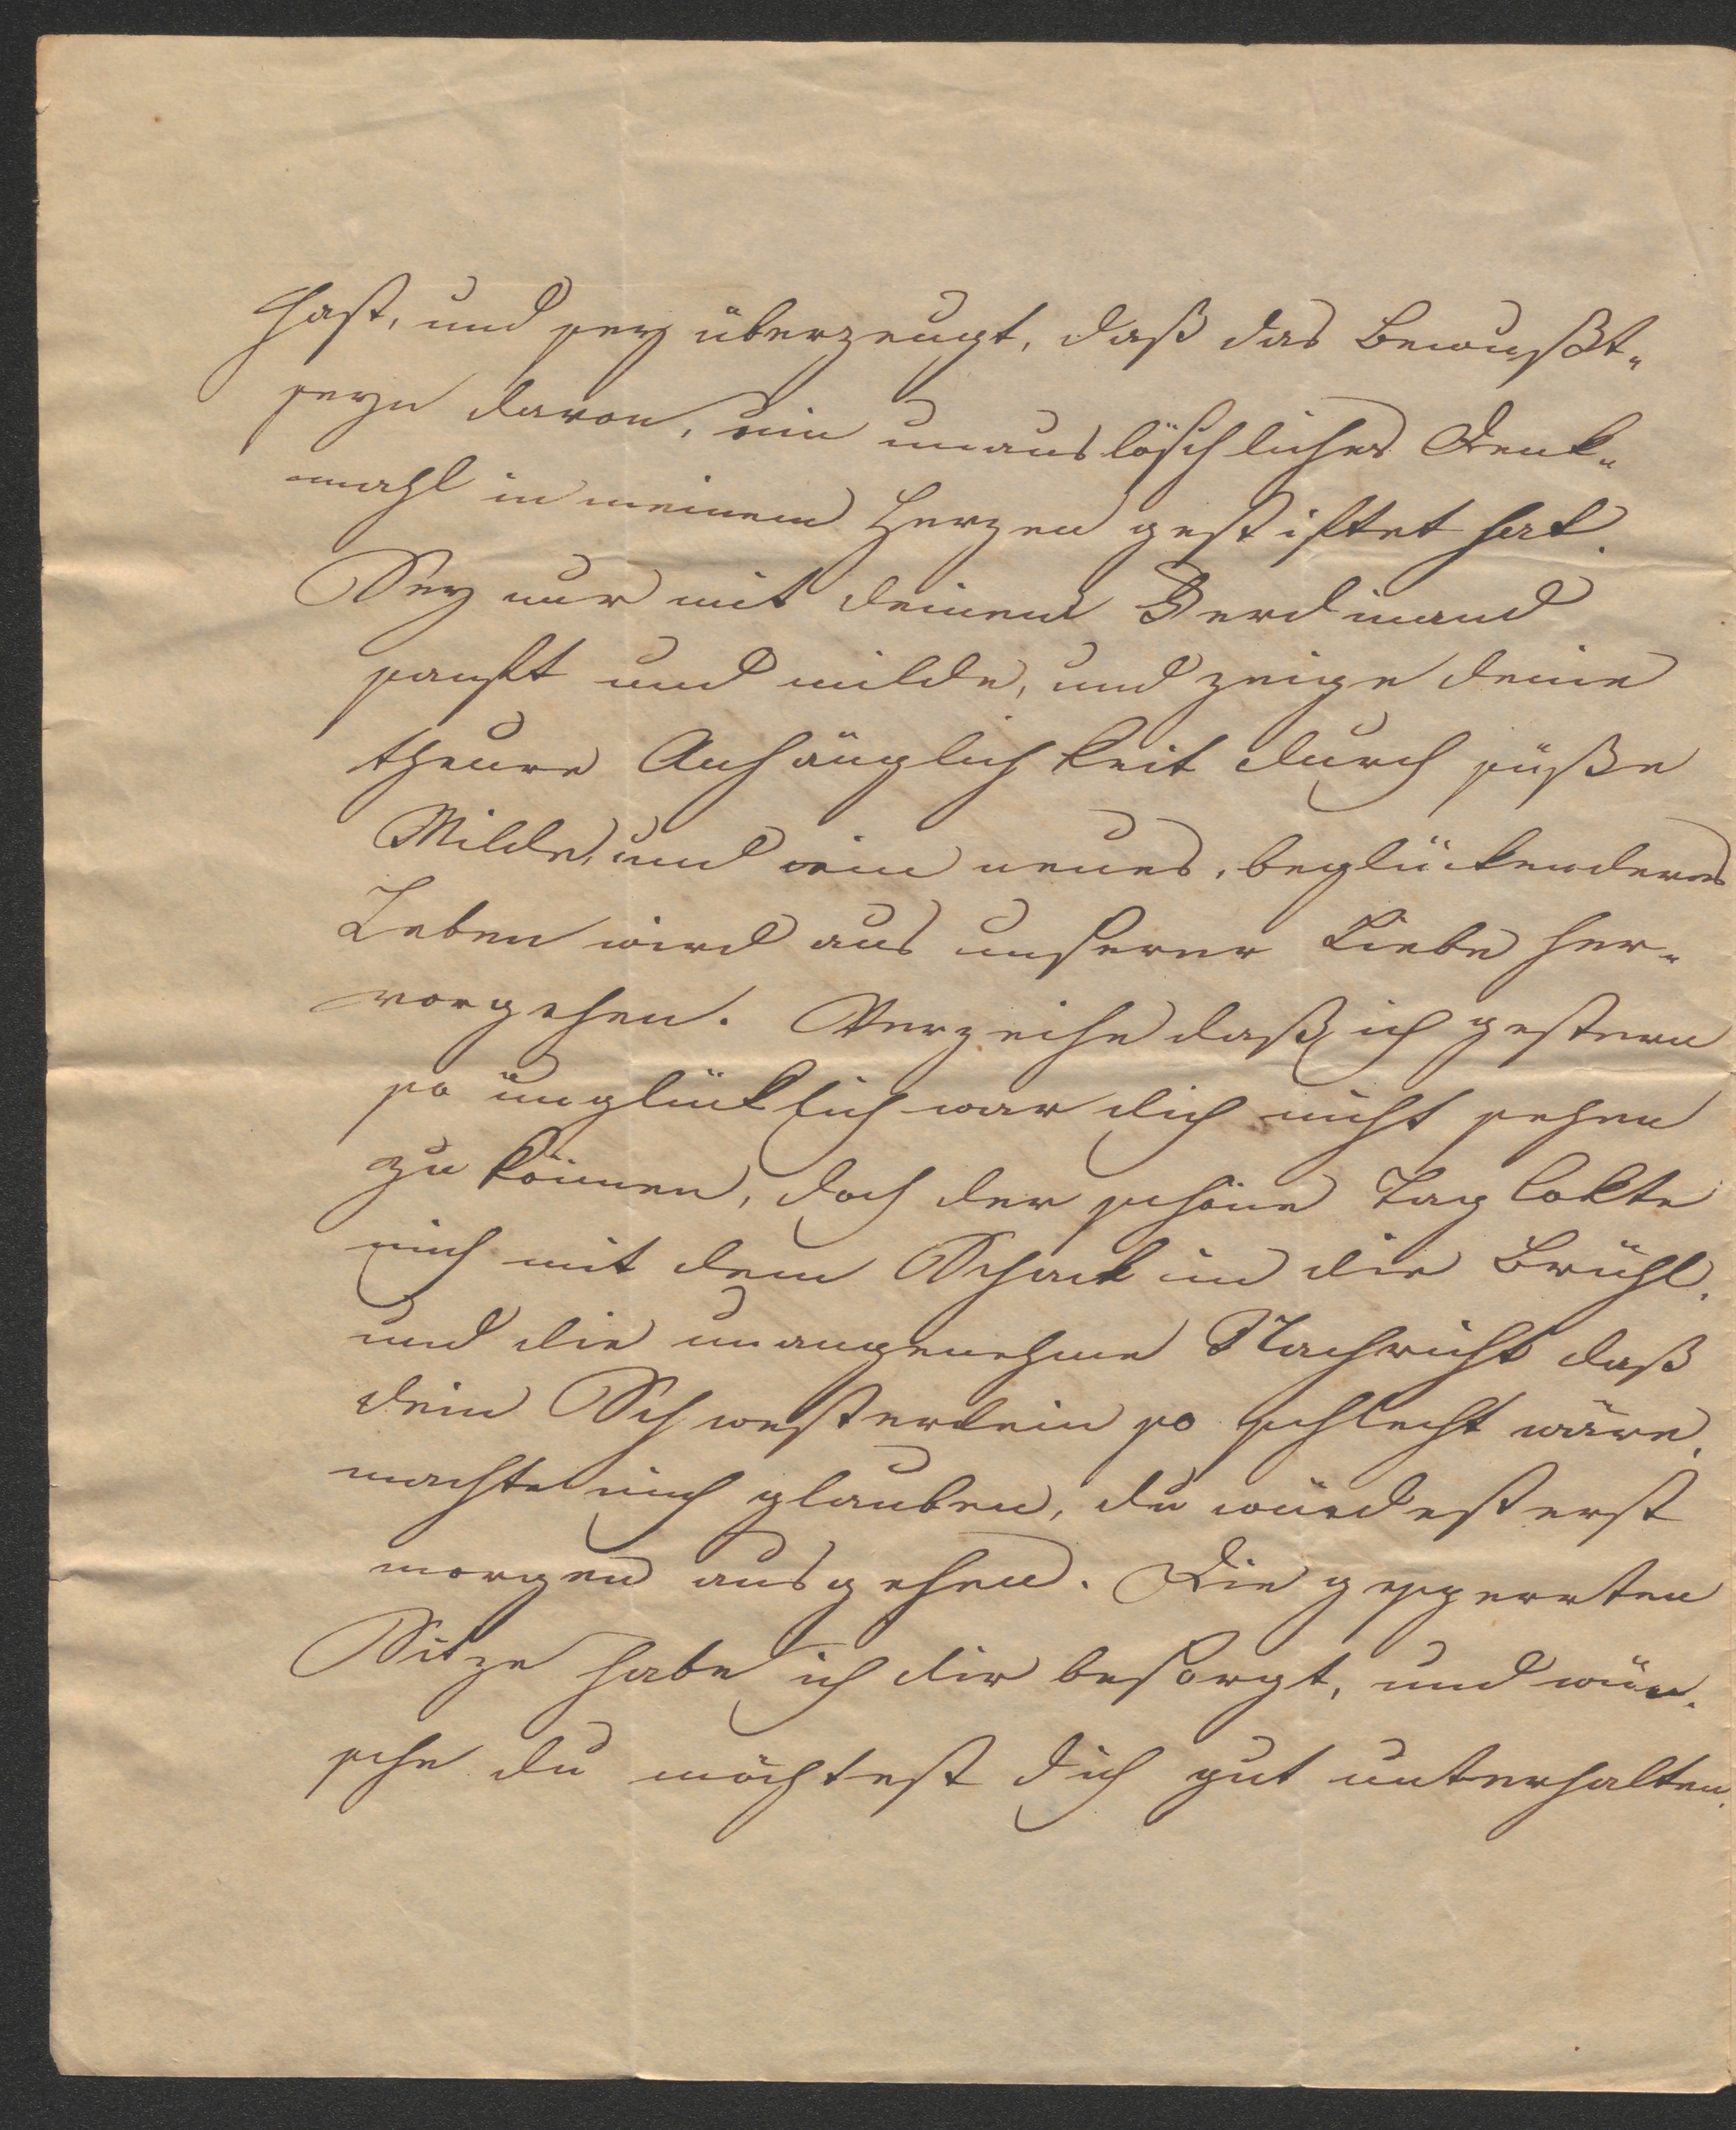 hast, und sey überzeugt, daß das Bewußt-
seyn davon, ein unauslöschliches Denk-
mahl in meinem Herzen gestiftet hat.
Sey nur mit deinem Ferdinand
sanft und milde, und zeige deine
theure Anhänglichkeit durch süße
Milde, und ein neues, beglückenderes
Leben wird aus unserer Liebe her-
vorgehen. Verzeihe daß ich gestern
so unglücklich war dich nicht sehen
zu können, doch der schöne Tag lokte
mich mit dem Schack in die Brühl,
und die unangenehme Nachricht daß
dein Schwesterlein so schlecht wäre,
machte mich glauben, du würdest erst
morgen ausgehen. Die gesperrten
Sitze habe ich dir besorgt, und wün-
sche du möchtest dich gut unterhalten.